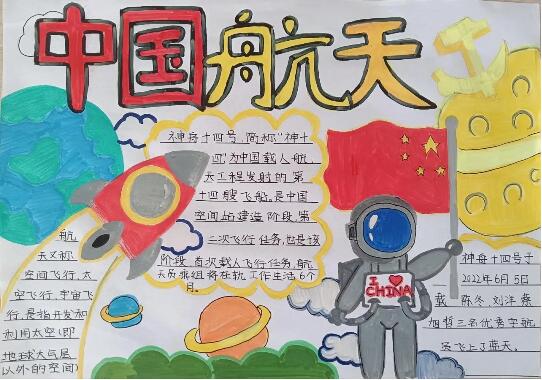 中国航天
神舟十四号,简称“神十
四”为中国载人航
天工程发射的第
十四艘飞船,是中国
空间站建造阶段第
二次飞行任务,也是该
阶段首次载人飞行任务,航
天员乘组将在轨工作生活6个
月.
航
天又称
空间飞行,太
空飞行,宇宙飞
行,是指开发和
利用太空(即
地球大气层
以外的空间)
I ❤
CHINA
神舟十四号于
2022年6月5日
载 陈冬 刘洋 蔡
旭哲三名优秀宇航
员飞上了蓝天.